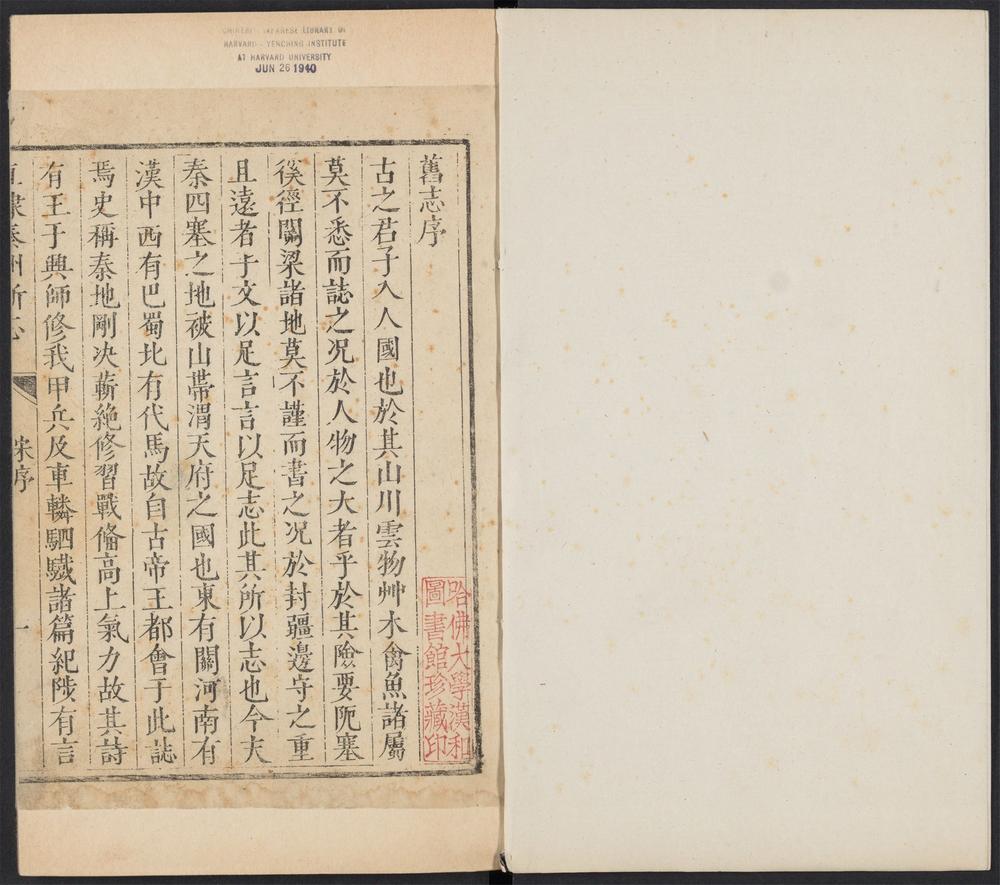 CHINESE-JAPANESE LIBRARY OF
HARVARD-YENCHING INSTITUTE
AT HARVARD UNIVERSITY
JUN 26 1940
舊志序
古之君子入人國也於其山川雲物艸木禽魚諸屬
莫不悉而誌之况於人物之大者乎於其險要阨塞
徯徑關梁諸地莫不謹而書之况於封疆邊守之重
且遠者乎文以足言言以足志此其所以志也今夫
秦四塞之地被山帶渭天府之國也東有關河南有
漢中西有巴蜀北有代馬故自古帝王都會于此誌
焉史稱秦地剛决蘄絶修習戰備高上氣力故其詩
有王于興師修我甲兵及車轔駟驖諸篇紀陟有言
直隷秦州新志
宋序
一
哈佛大學漢和
圖書館珍藏印